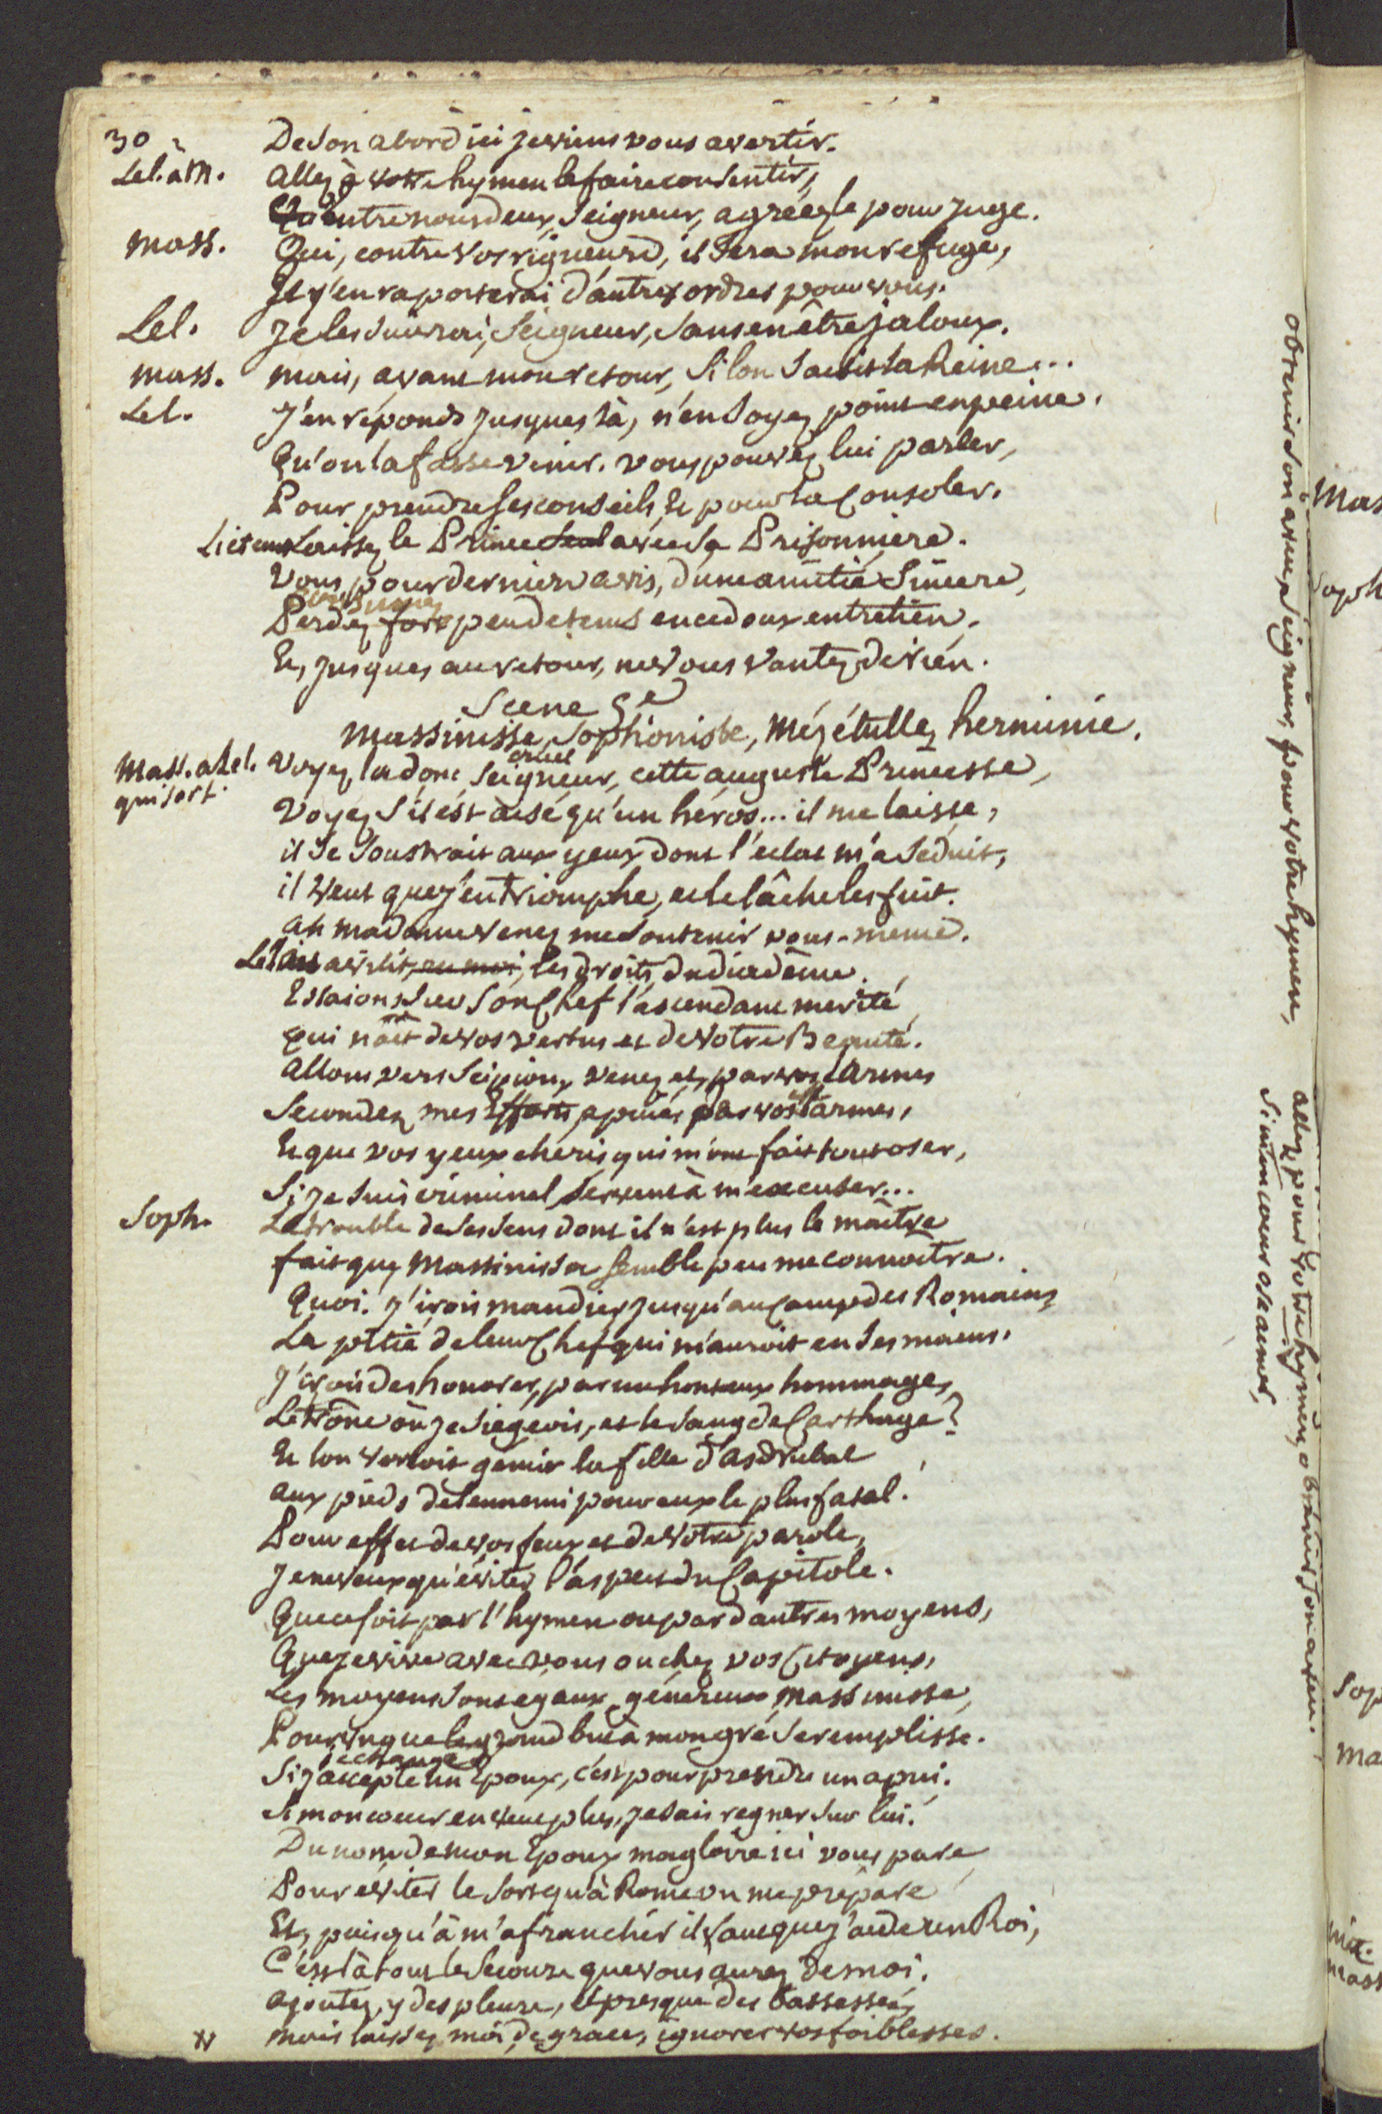 30
De son abord ici je viens vous avertir.
Lel. à M. allez à votre hymen le faire consentir,
Qu'entre nous deux, Seigneur, agréez le pour juge.
Mass. Oui, contre vos rigueurs, il sera mon refuge,
Et j'en raporterai d'autres ordres pour vous.
Lel. Je les suivrai, Seigneur, sans en être jaloux.
mass. mais, avant mon retour, si l'on saisit la Reine...
Lel. J'en réponds jusques là, n'en soyez point en peine.
Qu'on la fasse venir. vous pouvez lui parler,
Pour prendre ses conseils, et pour la consoler.
Licteurs Laissez le Prince seul avec sa Prisonniere.
Vous, pour dernier avis, d'une amitié sincere,
Perdez fort peu de tems en ce doux entretien,
Et, jusques au retour, ne vous vantez de rien.
Scene 5e
Massinisse, Sophonisbe, Mézétulle, herminie.
Mass. a Lel. qui sort. Voyez la donc, Seigneur, cette auguste Princesse,
cruel
Voyez s'il est aisé qu'un héros... il me laisse,
il se soustrait aux yeux dont l'éclat m'a séduit,
il veut que j'en triomphe, et le lâche les fuit.
ah madame venez me soutenir vous-meme.
Lelius avilit, en moi, les droits du diadême.
Essaions sur son Chef l'ascendant merité
qui naît de vos vertus et de votre Beauté.
allons vers Scipion, venez et, par vos larmes
Secondez mes Efforts, apuiés par vos armes,
Et que vos yeux cheris qui m'ont fait tout oser,
Si je suis criminel servent à m'excuser...
Soph. Le trouble de ses sens dont il n'est plus le maître
fait que Massinisse semble peu me connoitre.
Quoi. j'irois mandier jusqu'au Camp des Romains
La pitié de leur Chef qui m'auroit en ses mains.
J'irois deshonorer, par un honteux hommage,
Le trône où je siegeois, et le sang de Carthage?
Et l'on verroit gémir la fille d'Asdrubal
aux pieds de l'ennemi pour eux le plus fatal!
Pour effet de vos feux et de votre parole,
Je ne veux qu'éviter l'aspect du Capitole.
Que ce soit par l'hymen ou par d'autres moyens,
Que je vive avec vous ou chez vos Citoyens,
Les moyens sont egaux, généreux Massinisse,
Pourvu que le grand but à mon gré se remplisse.
je change d'
Si j'accepte un Epoux, c'est pour prendre un apui.
Si mon coeur en veut plus, je sais regner sur lui.
Du nom de mon Epoux ma gloire ici vous pare
Pour eviter le sort qu'à Rome on me prépare
Et, puisqu'à m'afranchir il faut que j'aide un Roi,
C'est là tout le secours que vous aurez de moi.
ajoutez, y des pleurs, et presque des bassesses,
mais laissez moi, de grace, ignorer vos foiblesses.
obtenir son aveu, Seigneur, pour votre hymen,
allez, pour votre hymen, obtenir son aveu.
Si mon coeur ose aimer,
Mas
Soph
Sop
Ma
mass